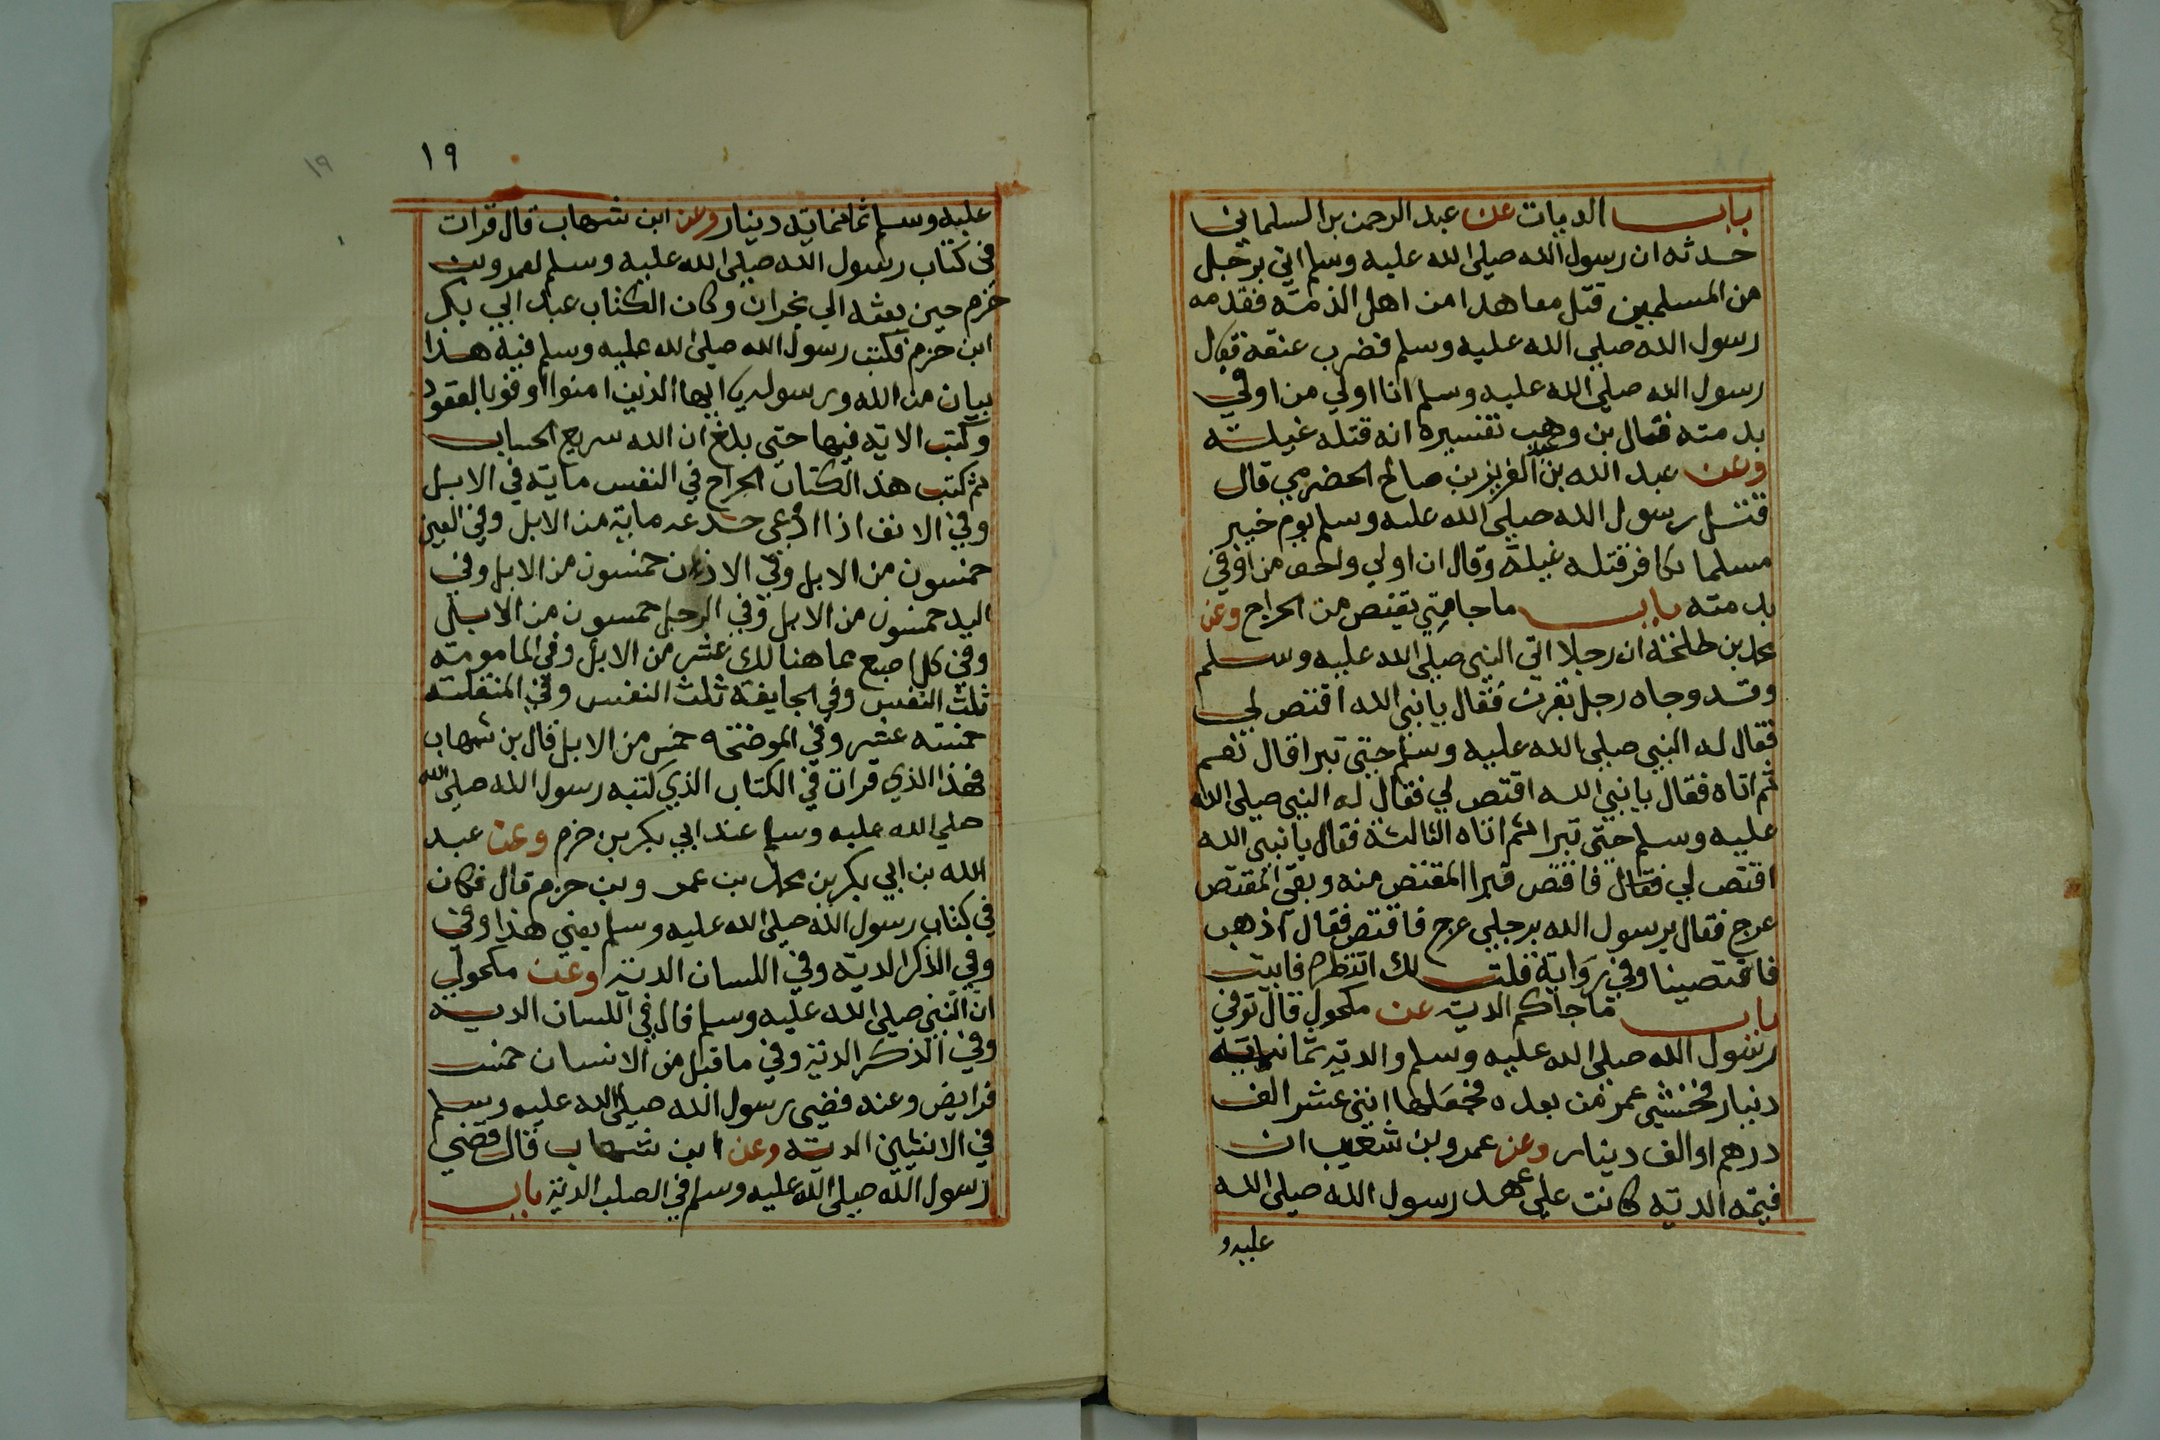 باب الديات عن عبد الرحمن بن السلماني
حدثه ان رسول الله صلى الله عليه وسلم اتي برجل
من المسلمين قتل معاهدا من اهل الذمة فقدمه
رسول الله صلى الله عليه وسلم فضرب عنقه فقال
رسول الله صلى الله عليه وسلم انا اولي من اوفي
بذمته فقال بن وهب تفسيره انه قتله غيلة
وعن عبد الله بن عبد العزيز بن صالح الحضرمي قال
قتل رسول الله صلى الله عليه وسلم يوم خيبر
مسلما بكافر قتله غيلة وقال ان اولي واحق من اوفي
بذمته باب ما جا متي يقتص من الجراح وعن
محمد بن طلحة ان رجلا اتي النبي صلى الله عليه وسلم
وقد وجاه رجل بقرن فقال يا نبي الله اقتص لي
فقال له النبي صلى الله عليه وسلم حتي تبرا قال نعم
ثم اتاه فقال يا نبي الله اقتص لي فقال له النبي صلى الله
عليه وسلم حتي تبرا ثم اتاه الثالثة فقال يا نبي الله
اقتص لي فقال فاقتص فبرا المقتص منه وبقي المقتص
عرج فقال يرسول الله برجلي عرج فاقتص فقال اذهب
فاقتصينا وفي رواية قلت لك انتظر فابيت
باب ما جا كم الدية عن مكحول قال توفي
رسول الله صلى الله عليه وسلم والدية ثمانماية
دينار فخشي عمر من بعده فجعلها اثني عشر الف
درهم او الف دينار وعن عمرو بن شعيب ان
قيمة الدية كانت علي عهد رسول الله صلى الله
عليه و
١٩
١٩
عليه وسلم ثمانماية دينار وعن ابن شهاب قال قرات
في كتاب رسول الله صلى الله عليه وسلم لعمرو بن
حزم حين بعثه الي نجران وكان الكتاب عند ابي بكر
ابن حزم فكتب رسول الله صلى الله عليه وسلم فيه هذا
بيان من الله ورسوله يا ايها الذين امنوا اوفوا بالعقود
وكتب الاية فيها حتي بلغ ان الله سريع الحساب
ثم كتب هذ الكتاب الجراح في النفس ماية في الابل
وفي الانف اذا ادعي جدعه ماية من الابل وفي العين
خمسون من الابل وفي الاذن خمسون من الابل وفي
اليد خمسون من الابل وفي الرجل خمسون من الابل
وفي كل اصبع مما هنالك عشر من الابل وفي المامومة
ثلث النفس وفي الجايفة ثلث النفس وفي المنقلة
خمسة عشر وفي الموضحة خمس من الابل قال بن شهاب
فهذا الذي قرات في الكتاب الذي كتبه رسول الله صلى الله
صلى الله عليه وسلم عند ابي بكر بن حزم وعن عبد
الله بن ابي بكر بن محمد بن عمر وبن حزم قال فكان
في كتاب رسول الله صلى الله عليه وسلم يعني هذا وفي
وفي الذكر الدية وفي اللسان الدية وعن مكحول
ان النبي صلى الله عليه وسلم قال في اللسان الدية
وفي الذكر الدية وفي ما قبل من الانسان خمس
فرايض وعنه قضي رسول الله صلى الله عليه وسلم
في الانثيين الدية وعن ابن شهاب قال قضي
رسول الله صلى الله عليه وسلم في الصلب الدية باب